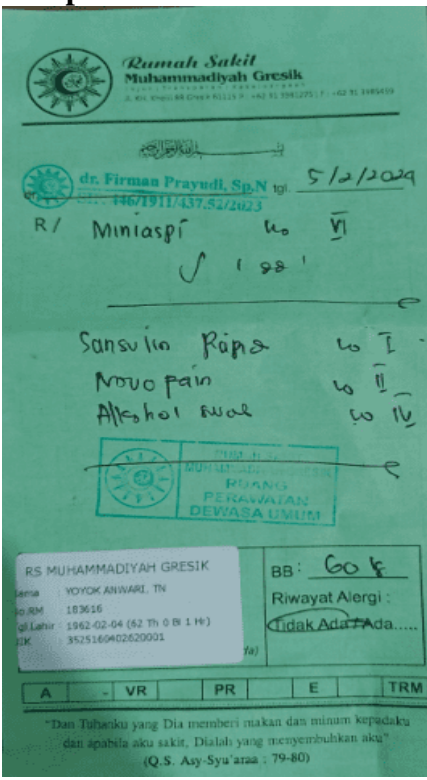 Rumah Sakit
Muhammadiyah Gresik
dr. Firman Prayudi, Sp.N tgl. 5/2/2024
446/1911/437.52/2023
R/ Miniaspi no VI
∫ 1
Sansulin no I
Novo pain no II
Alkohol no IV
MUHAMMADIYAH GRESIK
RUANG
PERAWATAN
DEWASA UMUM
RS MUHAMMADIYAH GRESIK
Nama : YOYOK ANWARI, TN
No.RM : 183616
Tgl Lahir : 1962-02-04 (62 Th 0 Bl 1 Hr)
NIK : 3525160402620001
BB : 60 k
Riwayat Alergi :
Tidak Ada / Ada.....
A - VR PR E TRM
"Dan Tuhanku yang Dia memberi makan dan minum kepadaku
dan apabila aku sakit, Dialah yang menyembuhkan aku"
(Q.S. Asy-Syu'araa : 79-80)